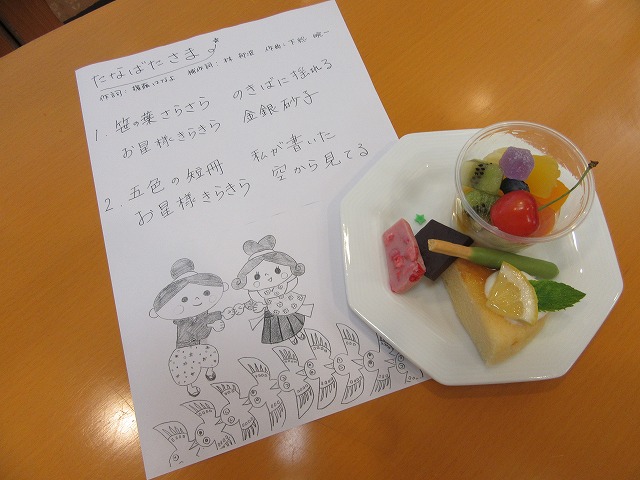 たなばたさま
作詞：権藤はなよ 補作詞：林 柳波 作曲：下総 皖一
1. 笹の葉さらさら のきばに揺れる
お星様きらきら 金銀砂子
2. 五色の短冊 私が書いた
お星様きらきら 空から見てる